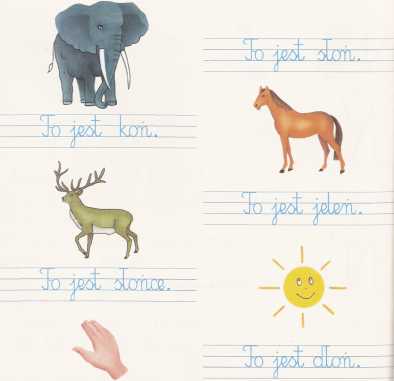 To jest słoń.
To jest koń.
To jest jeleń.
To jest słońce.
To jest dłoń.